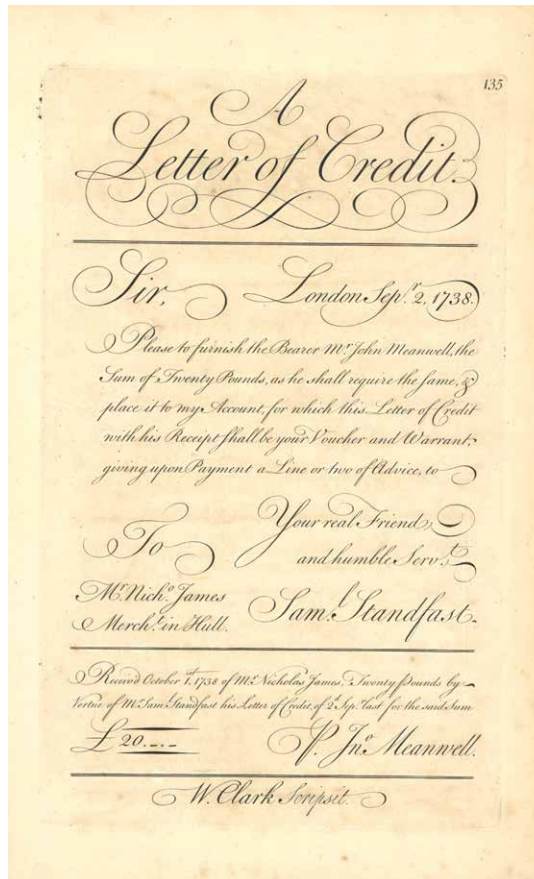 135
A
Letter of Credit.
Sir, London Sep.r 2, 1738.
Please to furnish the Bearer Mr. John Meanwell, the
Sum of Twenty Pounds, as he shall require the same, &
place it to my Account, for which this Letter of Credit
with his Receipt shall be your Voucher and Warrant,
giving upon Payment a Line or two of Advice, to
Your real Friend,
To and humble Serv.t
Mr. Nich.o James
Merch.t in Hull. Sam.l Standfast.
Receiv'd October 1.st 1738 of Mr. Nicholas James, Twenty Pounds by
Vertue of Mr. Sam. Standfast his Letter of Credit, of 2.d Sep.r last for the said Sum
£ 20.-.- P. Jn.o Meanwell.
W. Clark Scripsit.